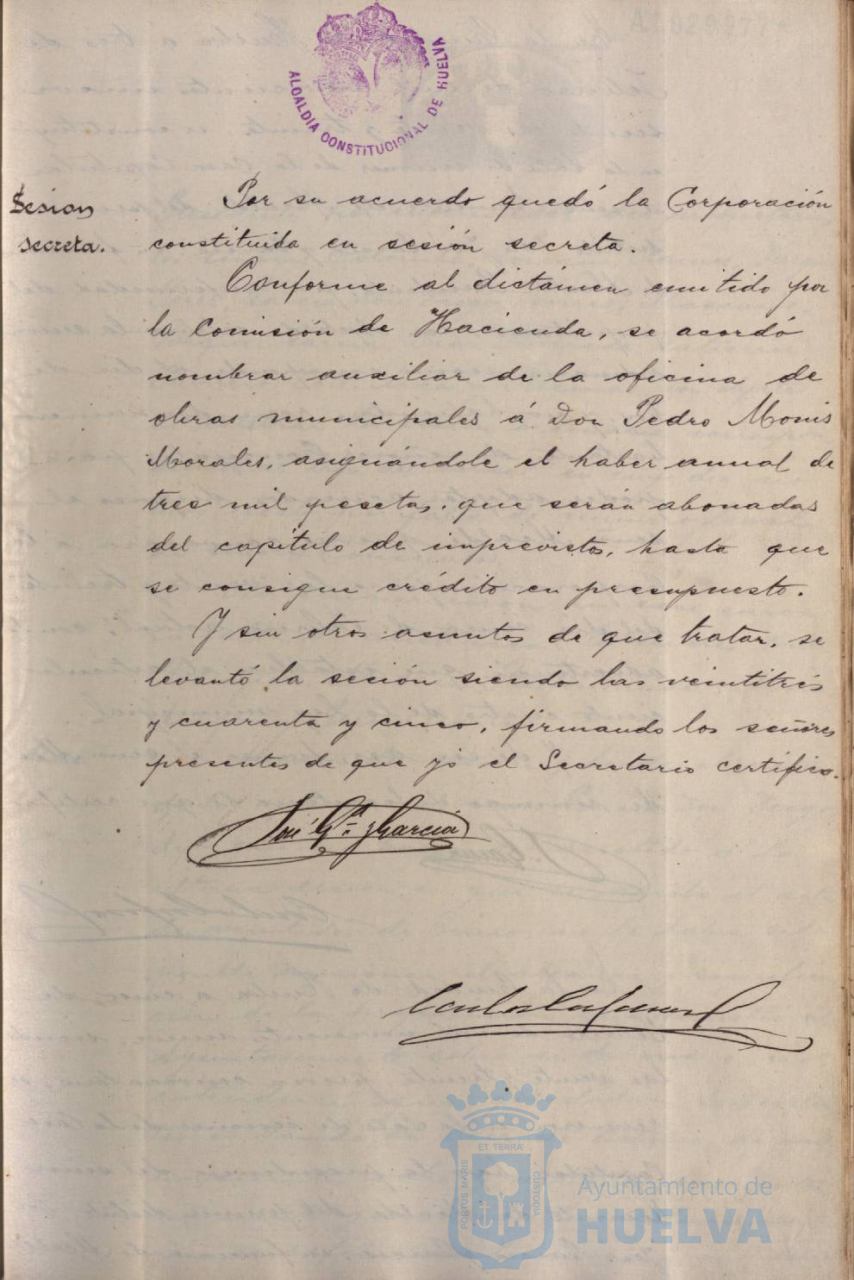 ALCALDIA CONSTITUCIONAL DE HUELVA
Sesion
secreta.
Por su acuerdo quedó la Corporación
constituida en sesión secreta.
Conforme al dictámen emitido por
la Comisión de Hacienda, se acordó
nombrar auxiliar de la oficina de
obras municipales á Don Pedro Monis
Morales, asignándole el haber anual de
tres mil pesetas, que serán abonadas
del capítulo de imprevistos, hasta que
se consigne crédito en presupuesto.
Y sin otros asuntos de que tratar, se
levantó la seción siendo las veintitrés
y cuarenta y cinco, firmando los señores
presentes de que yó el Secretario certifico.
José Gª. y García
Carlos
ET TERRA
PORTUS MARIS
CUSTODIA
Ayuntamiento de
HUELVA